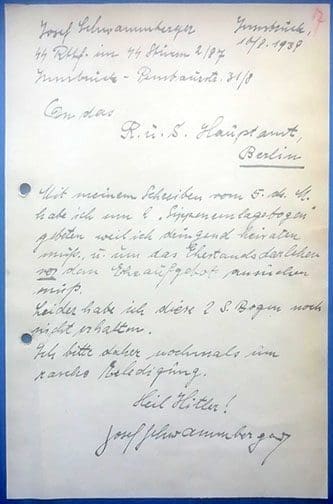 Josef Schwammberger Innsbruck, 17
SS Rttf. im SS Sturm 2/87 16/8. 1939
Innsbruck - Pembaurstr. 31/8
An das
R. u. S. Hauptamt,
Berlin
Mit meinem Schreiben vom 5. ds. M.
habe ich um 2 „Sippeneinlagebogen"
gebeten weil ich dringend Heiraten
muß, u. um das Ehestandsdarlehen
vor dem Eheaufgebot ansuchen
muß.
Leider habe ich diese 2 S. Bogen noch
nicht erhalten.
Ich bitte daher nochmals um
rasche Erledigung.
Heil Hitler!
Josef Schwammberger